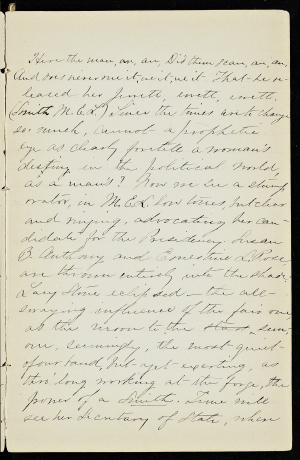 Here the man, an, an, Did them scan, an, an,
And does never one it, ve it, ve it That he re-
leased her Jinett, inett, inett,
(Smith, M. E. L.) Since the times are to change
so much, cannot a prophetic
eye as clearly foretell a woman's
destiny in the political world,
as a man's? Now we see a stump
orator, in M. E. L. how tones, put clear
and ringing, advocating her can-
didate for the Presidency. Susan
B. Anthony and Ernestine L. Rose
are thrown entirely into the shade.
Lucy Stone eclipsed — the all-
swaying influence of the fair one
as the moon to the stars, seem,
one, seemingly, the most quiet
of our band, but yet exerting, as
tho' long working at the forge, the
power of a Smith. Time will
see her Secretary of State, when